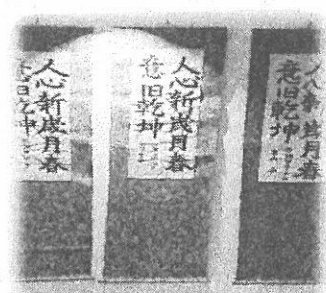 人心新歳月春
意旧乾坤
人心新歳月春
意旧乾坤
人心新歳月春
意旧乾坤